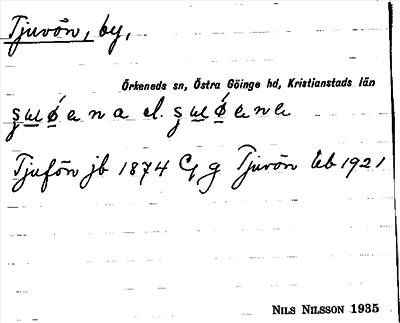 Tjuvön, by,
Örkeneds sn, Östra Göinge hd, Kristianstads län
el.
Tjufön jb 1874 Tjuvön üb 1921
NILS NILSSON 1935